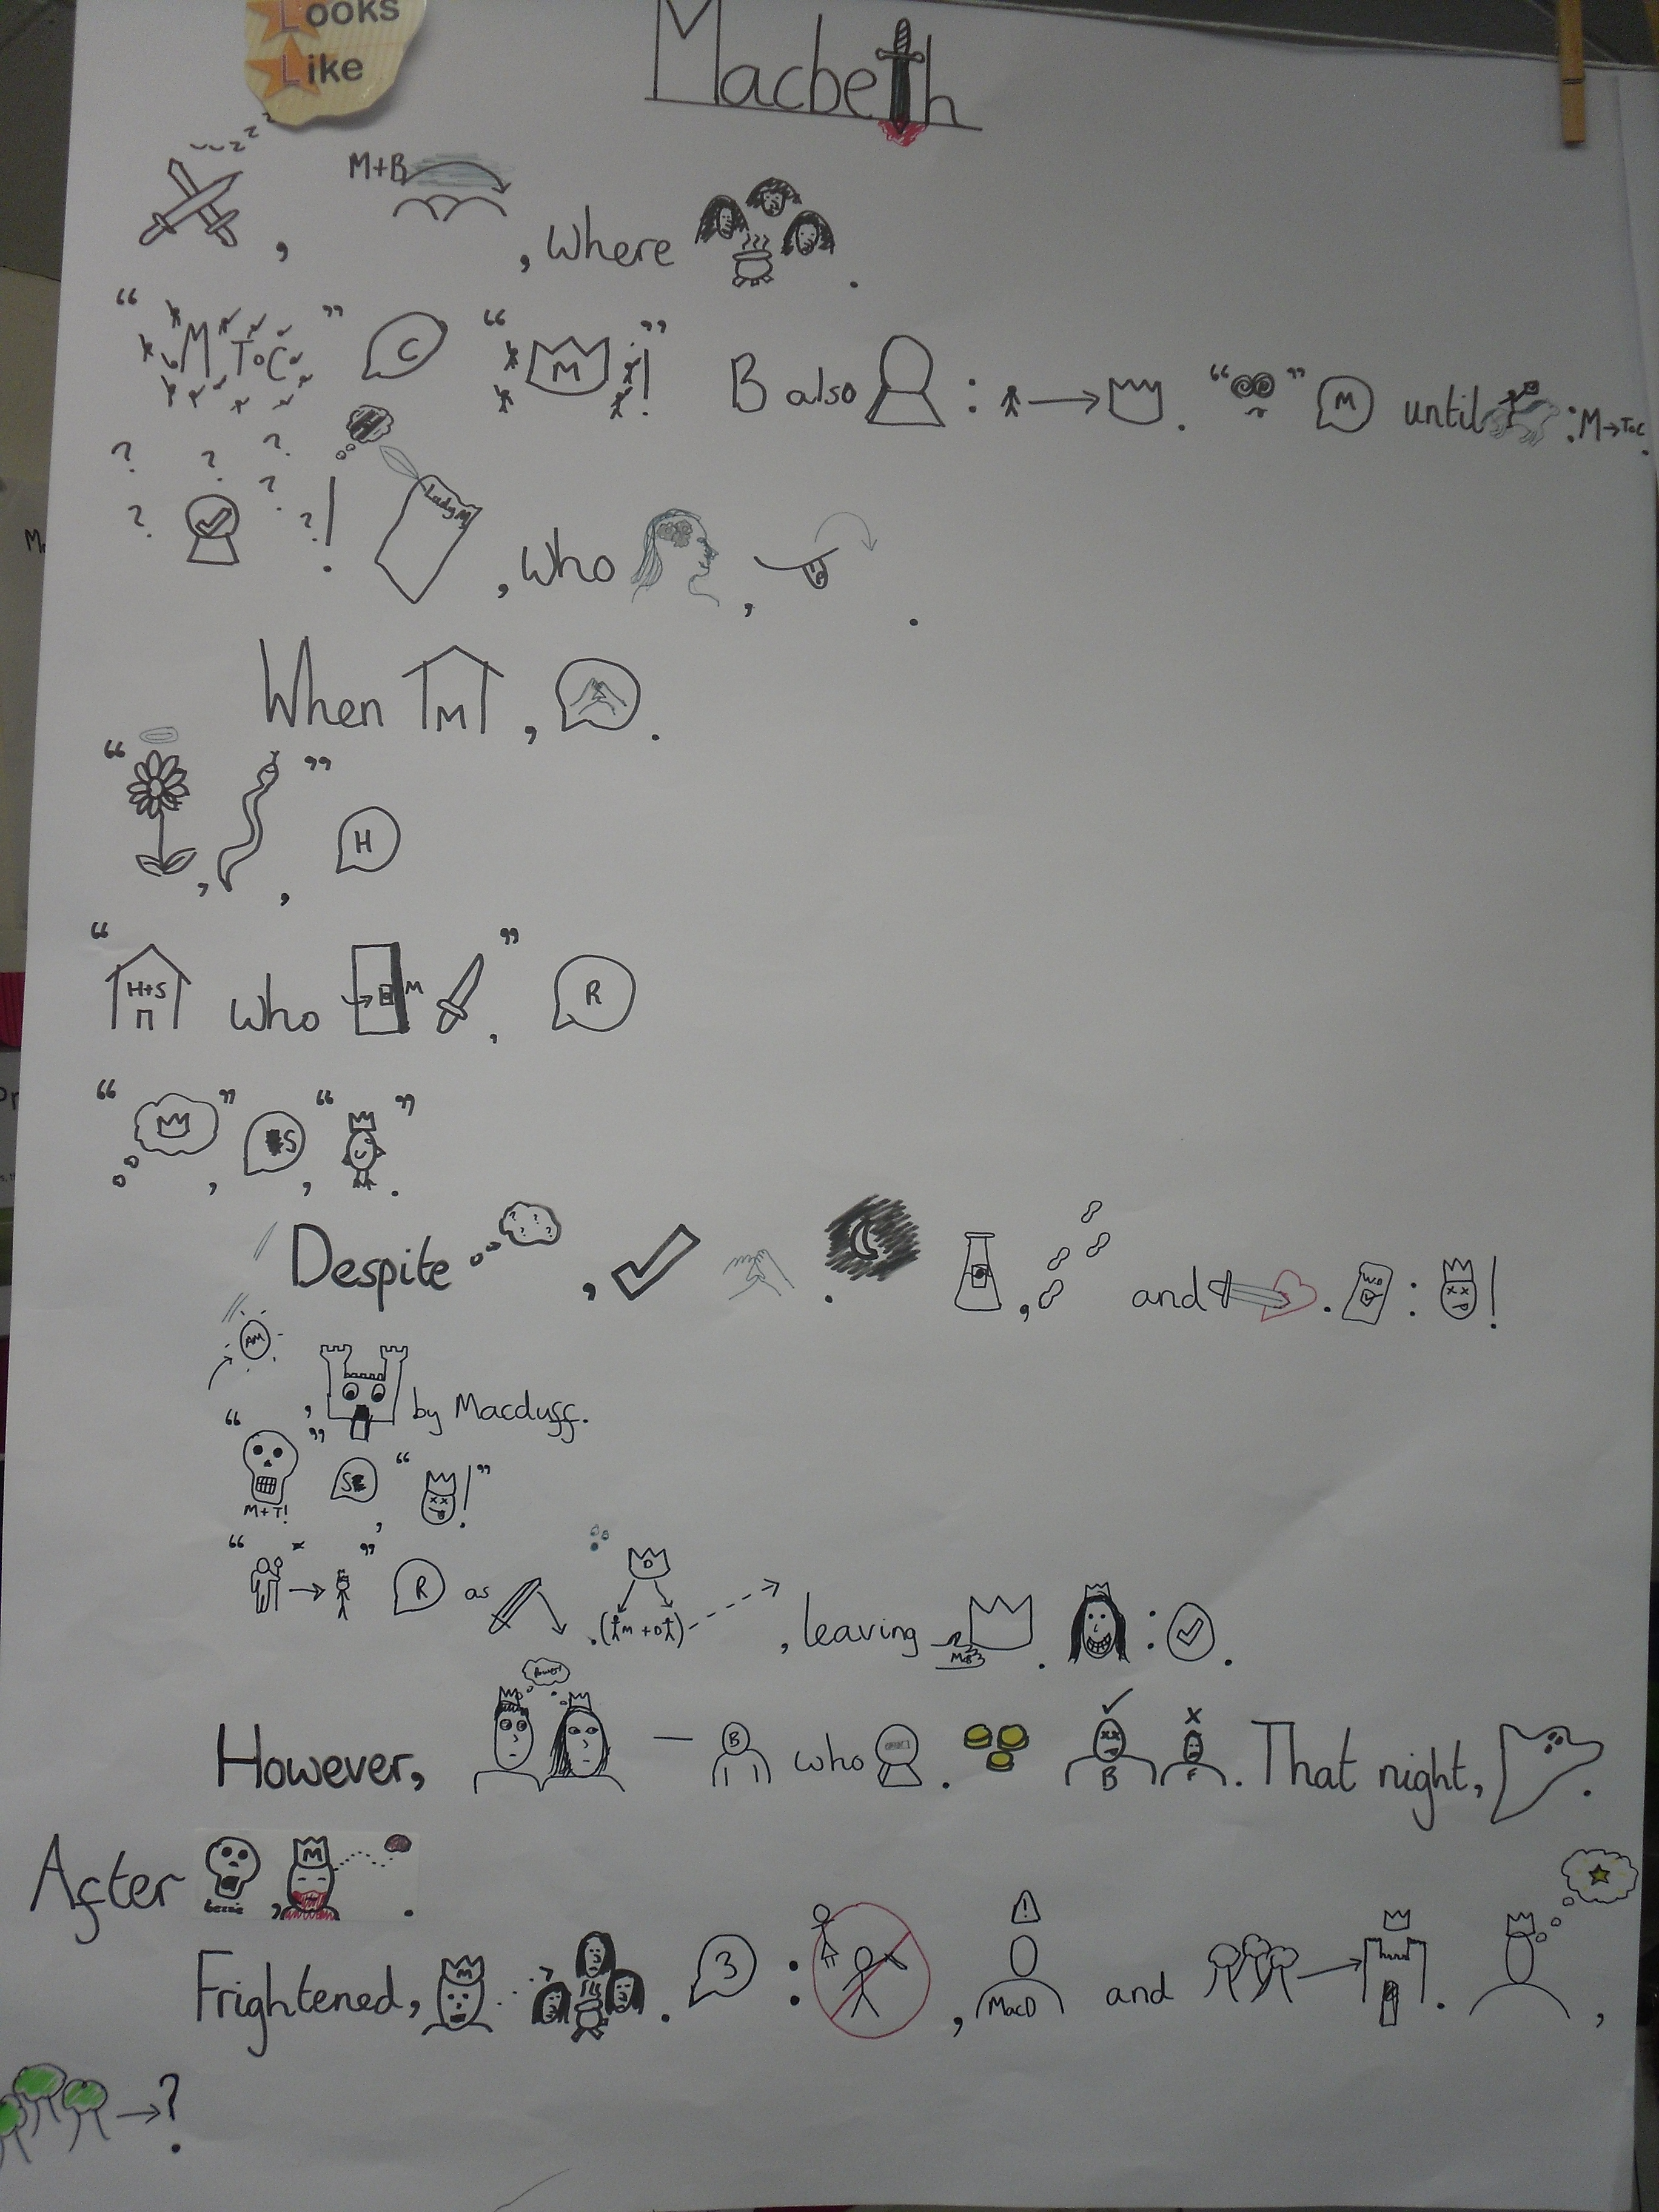 Looks
Like
Macbeth
zzz
M+B
, where .
" M ToC " C " M ! " B also : → . " " M until : M→ToC.
? ? ? ? ? ? ! Lady M , who , .
When M , .
" , " , H
" H+S who M , " R
" " , S , " " .
Despite ? ? ? , . , and . : !
AM , by Macduff.
" M+T! " S , " ! "
" → " R as . D (M + D) , leaving . : .
However, Power! — B who . B F . That night, .
After , M .
Frightened, M . 3 : , ! MacD and → . ,
→ ? .